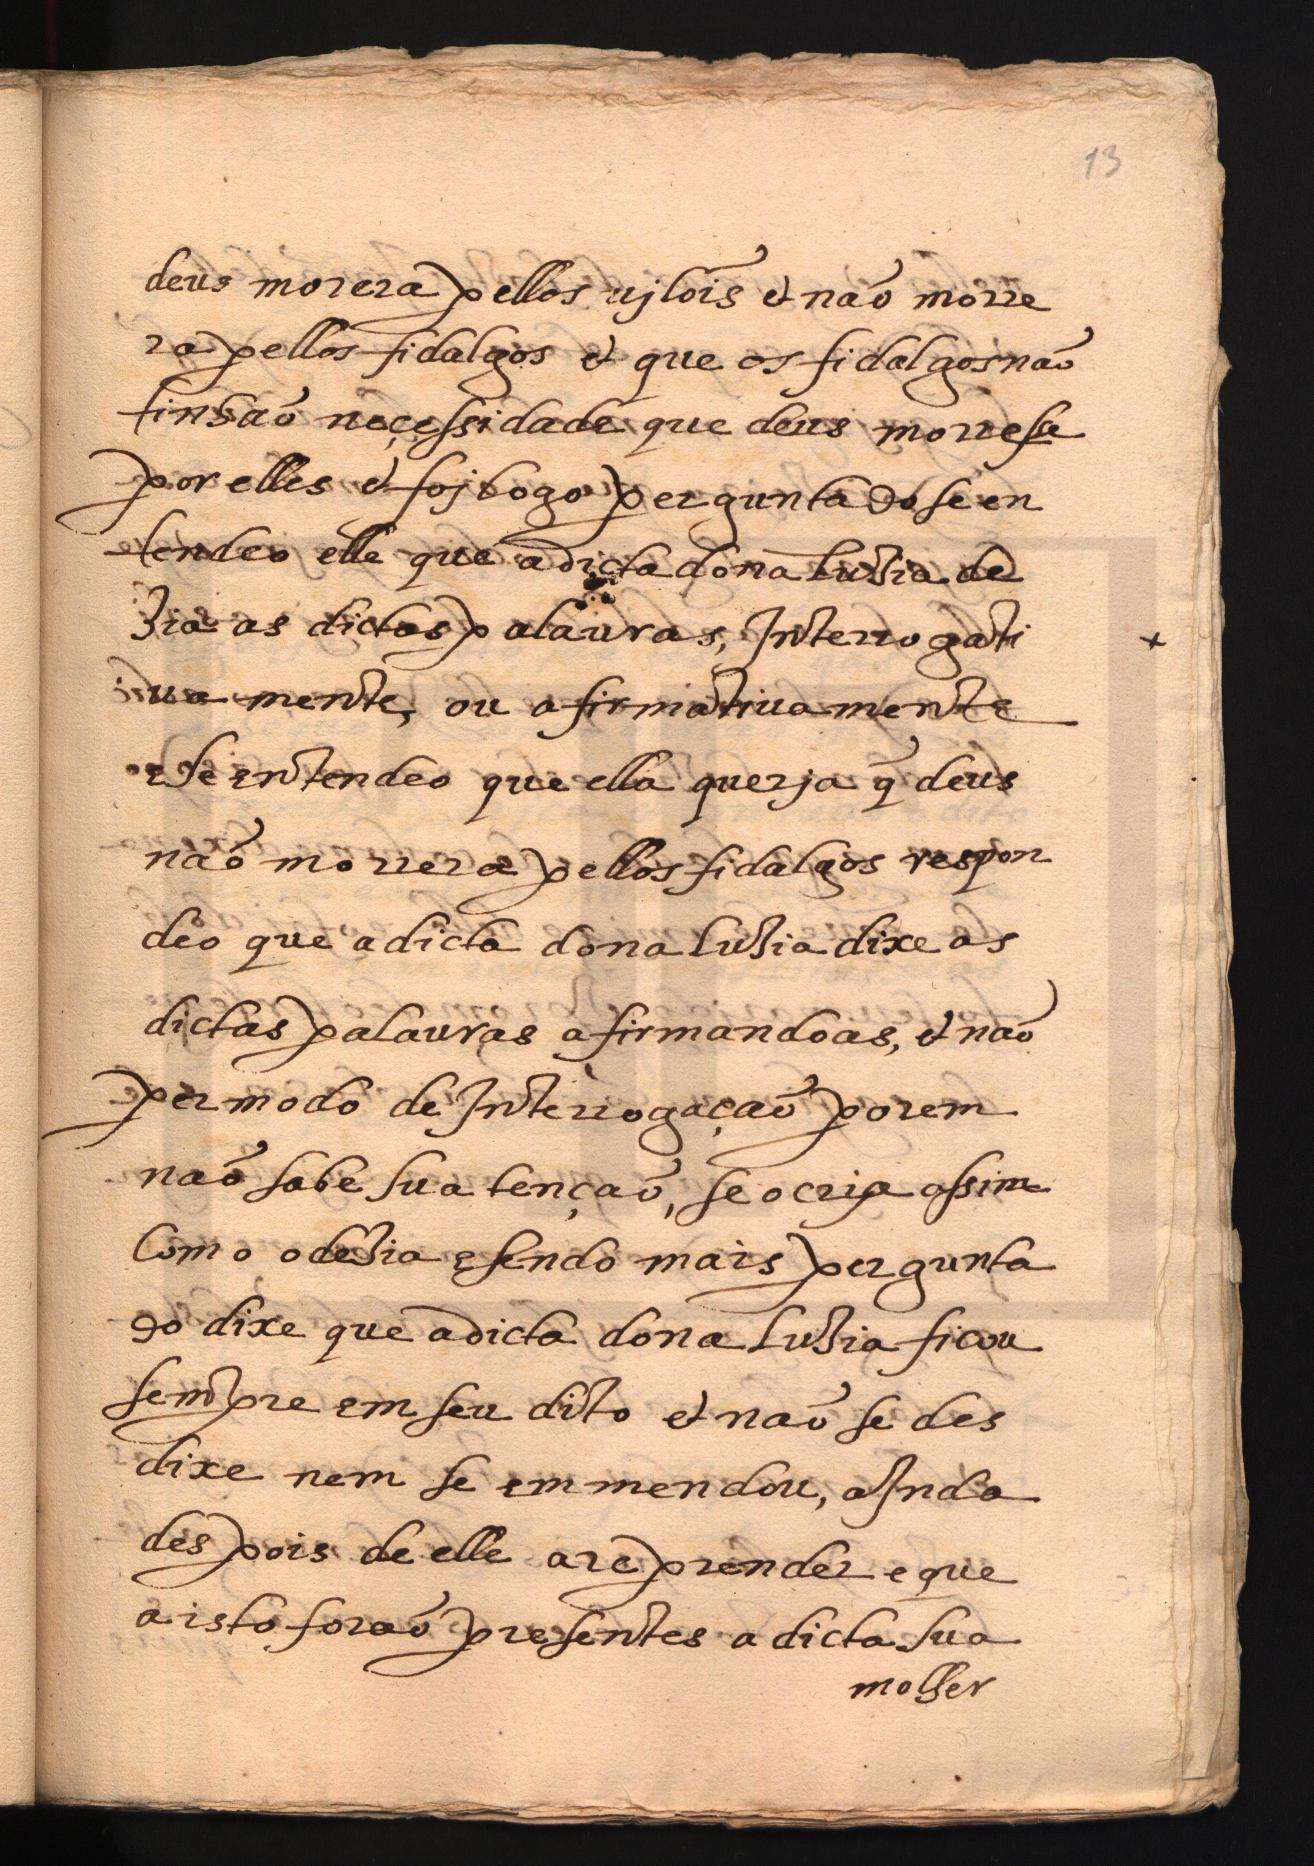 13
deus morera pellos ujlois̃ & naõ morre
ra pellos fidalgos & que os fidalgos naõ
tinhaõ neçessidade que deus morresse
por elles & foj logo perguntado se en
tendeo elle que a dicta dona luzia de
zia as dictas palauras, Interrogati
ua mente, ou afirmatiuamente
e se entendeo que ella querja q̃ deus
naõ morrera pellos fidalgos respon
deo que a dicta dona luzia dixe as
dictas palauras afirmandoas, & naõ
per modo de Interrogaçaõ porem
naõ sabe sua tençaõ, se o cria assim
como o dezia e sendo mais pergunta
do dixe que a dicta dona luzia ficou
sempre em seu dito & naõ se des
dixe nem se emmendou, aInda
despois de elle a reprender e que
a isto foraõ presentes a dicta sua
molher